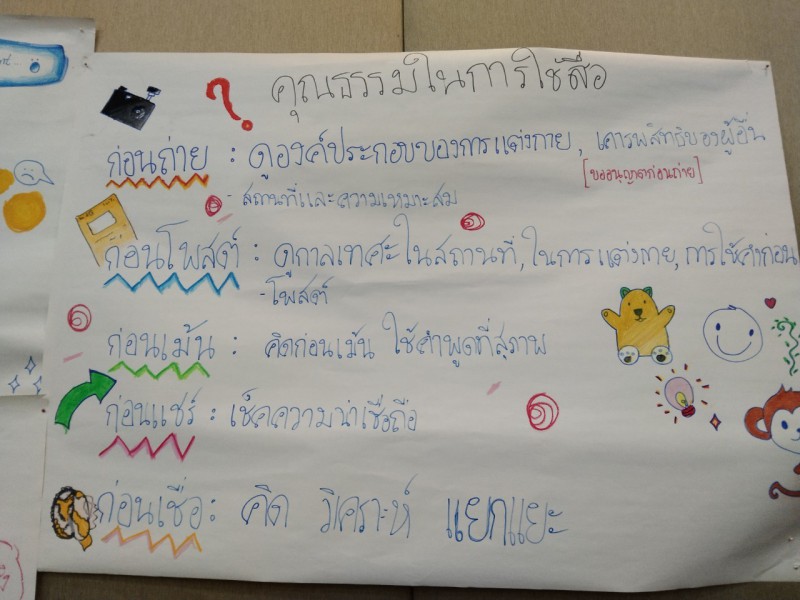 คุณธรรมในการใช้สื่อ
ก่อนถ่าย : ดูองค์ประกอบของการแต่งกาย, เคารพสิทธิของผู้อื่น
[ขออนุญาตก่อนถ่าย]
- สถานที่และความเหมาะสม
ก่อนโพสต์ : ดูกาลเทศะในสถานที่, ในการแต่งกาย, การใช้คำก่อน
- โพสต์
ก่อนเม้น : คิดก่อนเม้น ใช้คำพูดที่สุภาพ
ก่อนแชร์ : เช็คความน่าเชื่อถือ
ก่อนเชื่อ : คิด วิเคราะห์ แยกแยะ